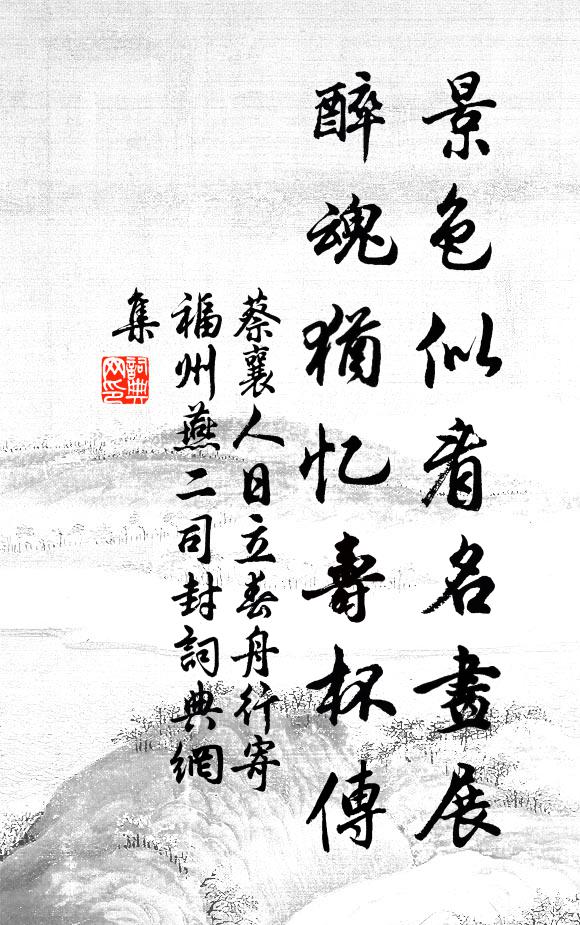 景色似看名畫展
醉魂猶忆壽杯傳
蔡襄人日立春舟行寄
福州燕二司封詞典網
集
詞典
网印